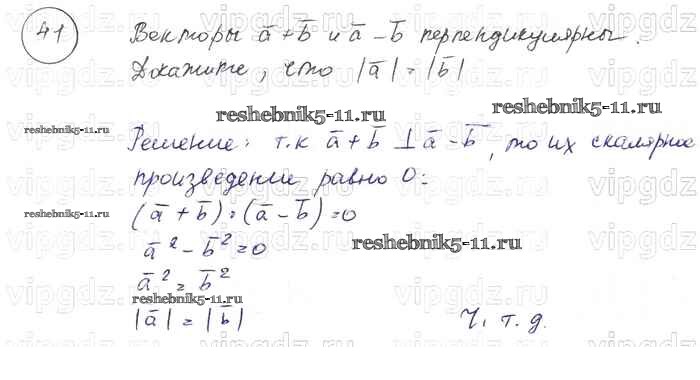 41 Векторы a̅ + b̅ и a̅ - b̅ перпендикулярны.
Докажите, что |a̅| = |b̅|
reshebnik5-11.ru
reshebnik5-11.ru
reshebnik5-11.ru
Решение: т.к a̅ + b̅ ⊥ a̅ - b̅, то их скалярное
произведение равно 0:
(a̅ + b̅) · (a̅ - b̅) = 0
reshebnik5-11.ru
a̅² - b̅² = 0
reshebnik5-11.ru
a̅² = b̅²
reshebnik5-11.ru
|a̅| = |b̅| Ч. т. д.
vipgdz.ru